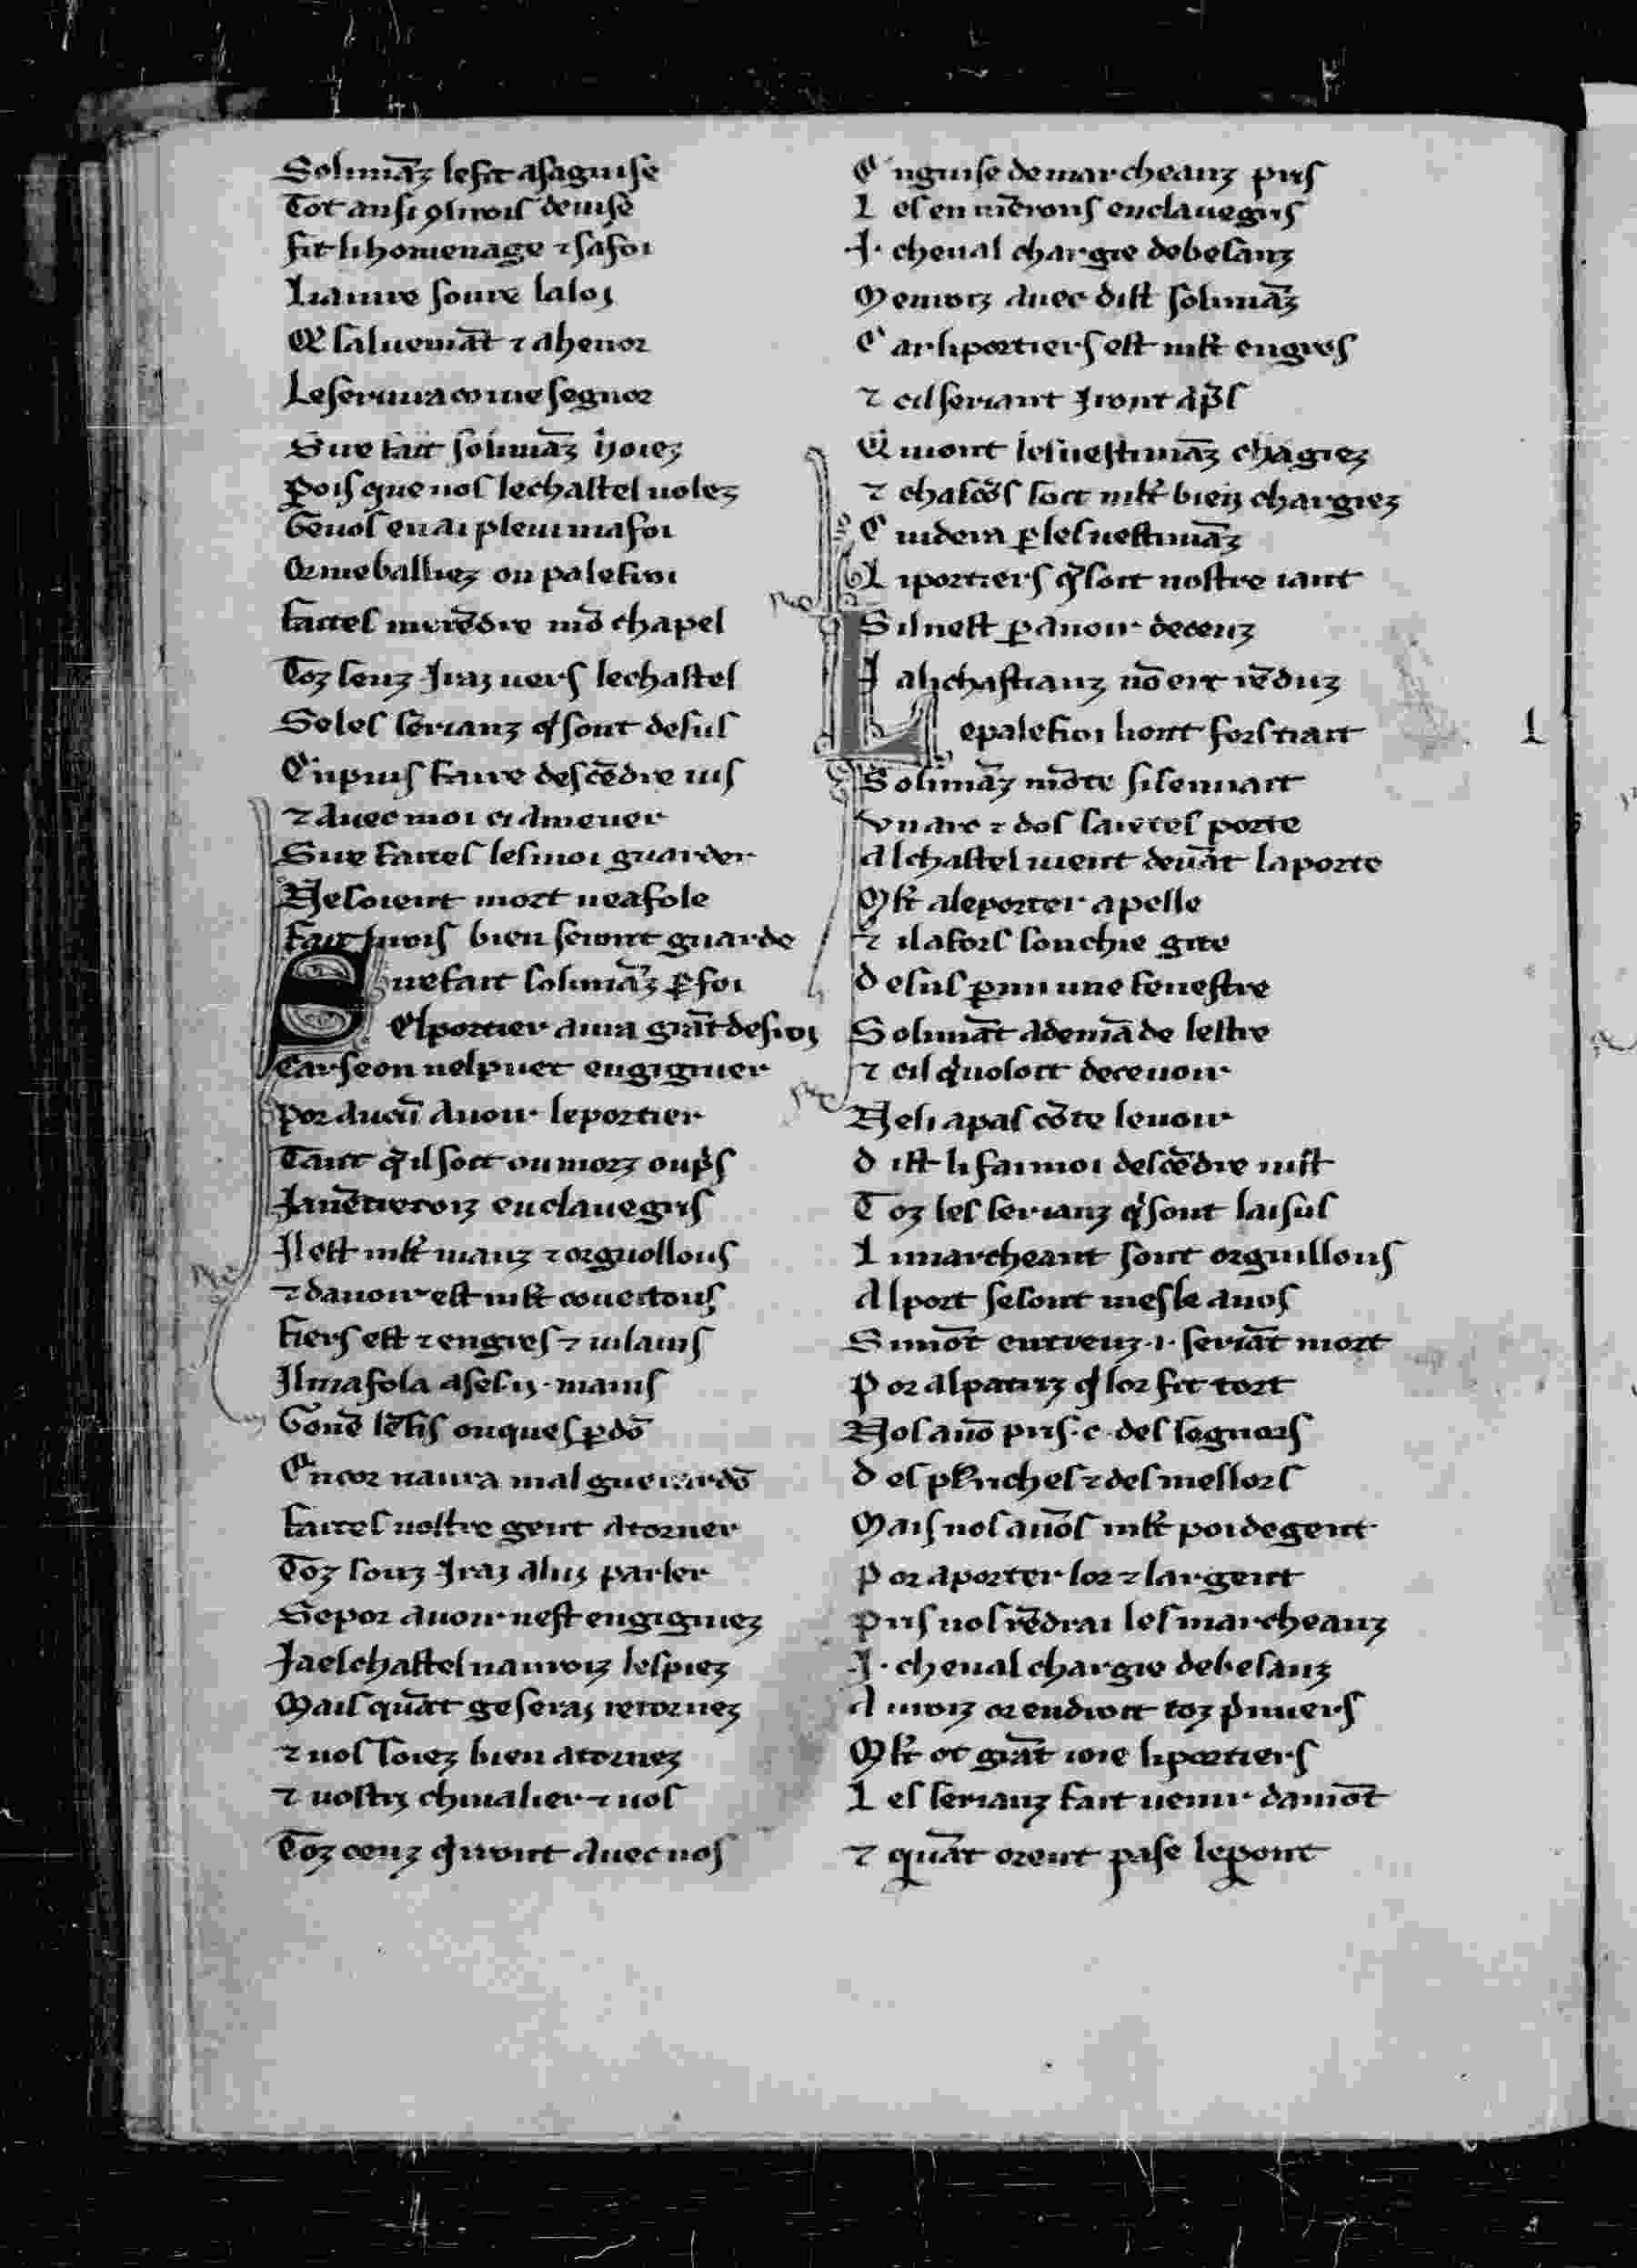 Solimãz le fit a sa guise
Tot ausi ꝯ li rois deuise
fit li homenage ⁊ sa foi
Li aiure soure la loi
Q̃ salueniãt ⁊ a henor
Le seruira come segnor
Sire fait solimãz ṡ oiez
Pois que uos le chastel uolez
Ge uos en ai pleui ma foi
Or me balliez un palefroi
faites me rẽdre mõ chapel
Toz seuz Jrai uers le chastel
Se les seriauz q̇ sont desus
En puis faire descẽdre ius
⁊ auec moi ci amener
Sire faites les moi guarder
Ne soient mort ne afole
fait li rois bien seront guarde
Sire fait solimãz ꝑ foi
El portier a ml̃a grãt desroi
Car se on nel puet engignier
Por aucũ auoir le portier
Tant q̇l soit ou morz ou pᵢs
Ja nẽtreroiz en clauegris
Jl est ml̃t mauz ⁊ orguollous
⁊ dauoir est ml̃t coueitous
fiers est ⁊ engres ⁊ uilains
Jl mafola a ses .ij. mains
Ge nẽ lẽ fis onques ꝑdõ
Encor naura mal guerardõ
faites uostre gent atorner
Toz souz Jrai a lui parler
Se por auoir nest engigniez
Ja el chastel nauroiz les piez
Mais quãt ge serai retornez
⁊ uos soiez bien atornez
⁊ uostrȝ cheualier ⁊ uos
Toz ceuz q̇ iront auec uos
En guise de marcheanz pris
Les en mẽrons en clauegris
.I. cheual chargie de besanz
Menroiz auec dist solimãz
Car li portiers est ml̃t engres
⁊ cil seriant Jront ap̃s
Qͥ mont les uestimãz chãgiez
⁊ chascũs soit ml̃t bien chargiez
Cuidera ꝑ les uestimãz
Li portiers q̇ soit nostre iant
Sil nest ꝑ auoir deceuz
Ja li chastiauz nõ ert rẽduz
Le palefroi li ont fors trait
Solimãz mõte si sen uait
Un arc ⁊ dos saietes porte
Al chastel uient deuãt la porte
Ml̃t a le porter apelle
⁊ il a fors son chie gite
Desus ꝑmi une fenestre
Solimãt a demãde lestre
⁊ cil q̇ uoloit deceuoir
Ne li a pas cõte le uoir
Dist li fai moi descẽdre iust
Toz les serianz q̇ sont laisus
Li marcheant sont orguillous
Al port se sont mesle a nos
Si mõt entreuz .i. seriãt mort
Por alpatriz q̇ lor fit tort
Nos auõ pris .c. des segnors
Des pl̃ riches ⁊ des mellors
Mais nos auõs ml̃t poi de gent
Por aporter lor ⁊ largent
Pris uos rẽdrai les marcheanz
.I. cheual chargie de besanz
Auroiz orendroit toz p̃miers
Ml̃t ot grãt ioie li portiers
Les serianz fait uenir damõt
⁊ quãt orent pase le pont
L